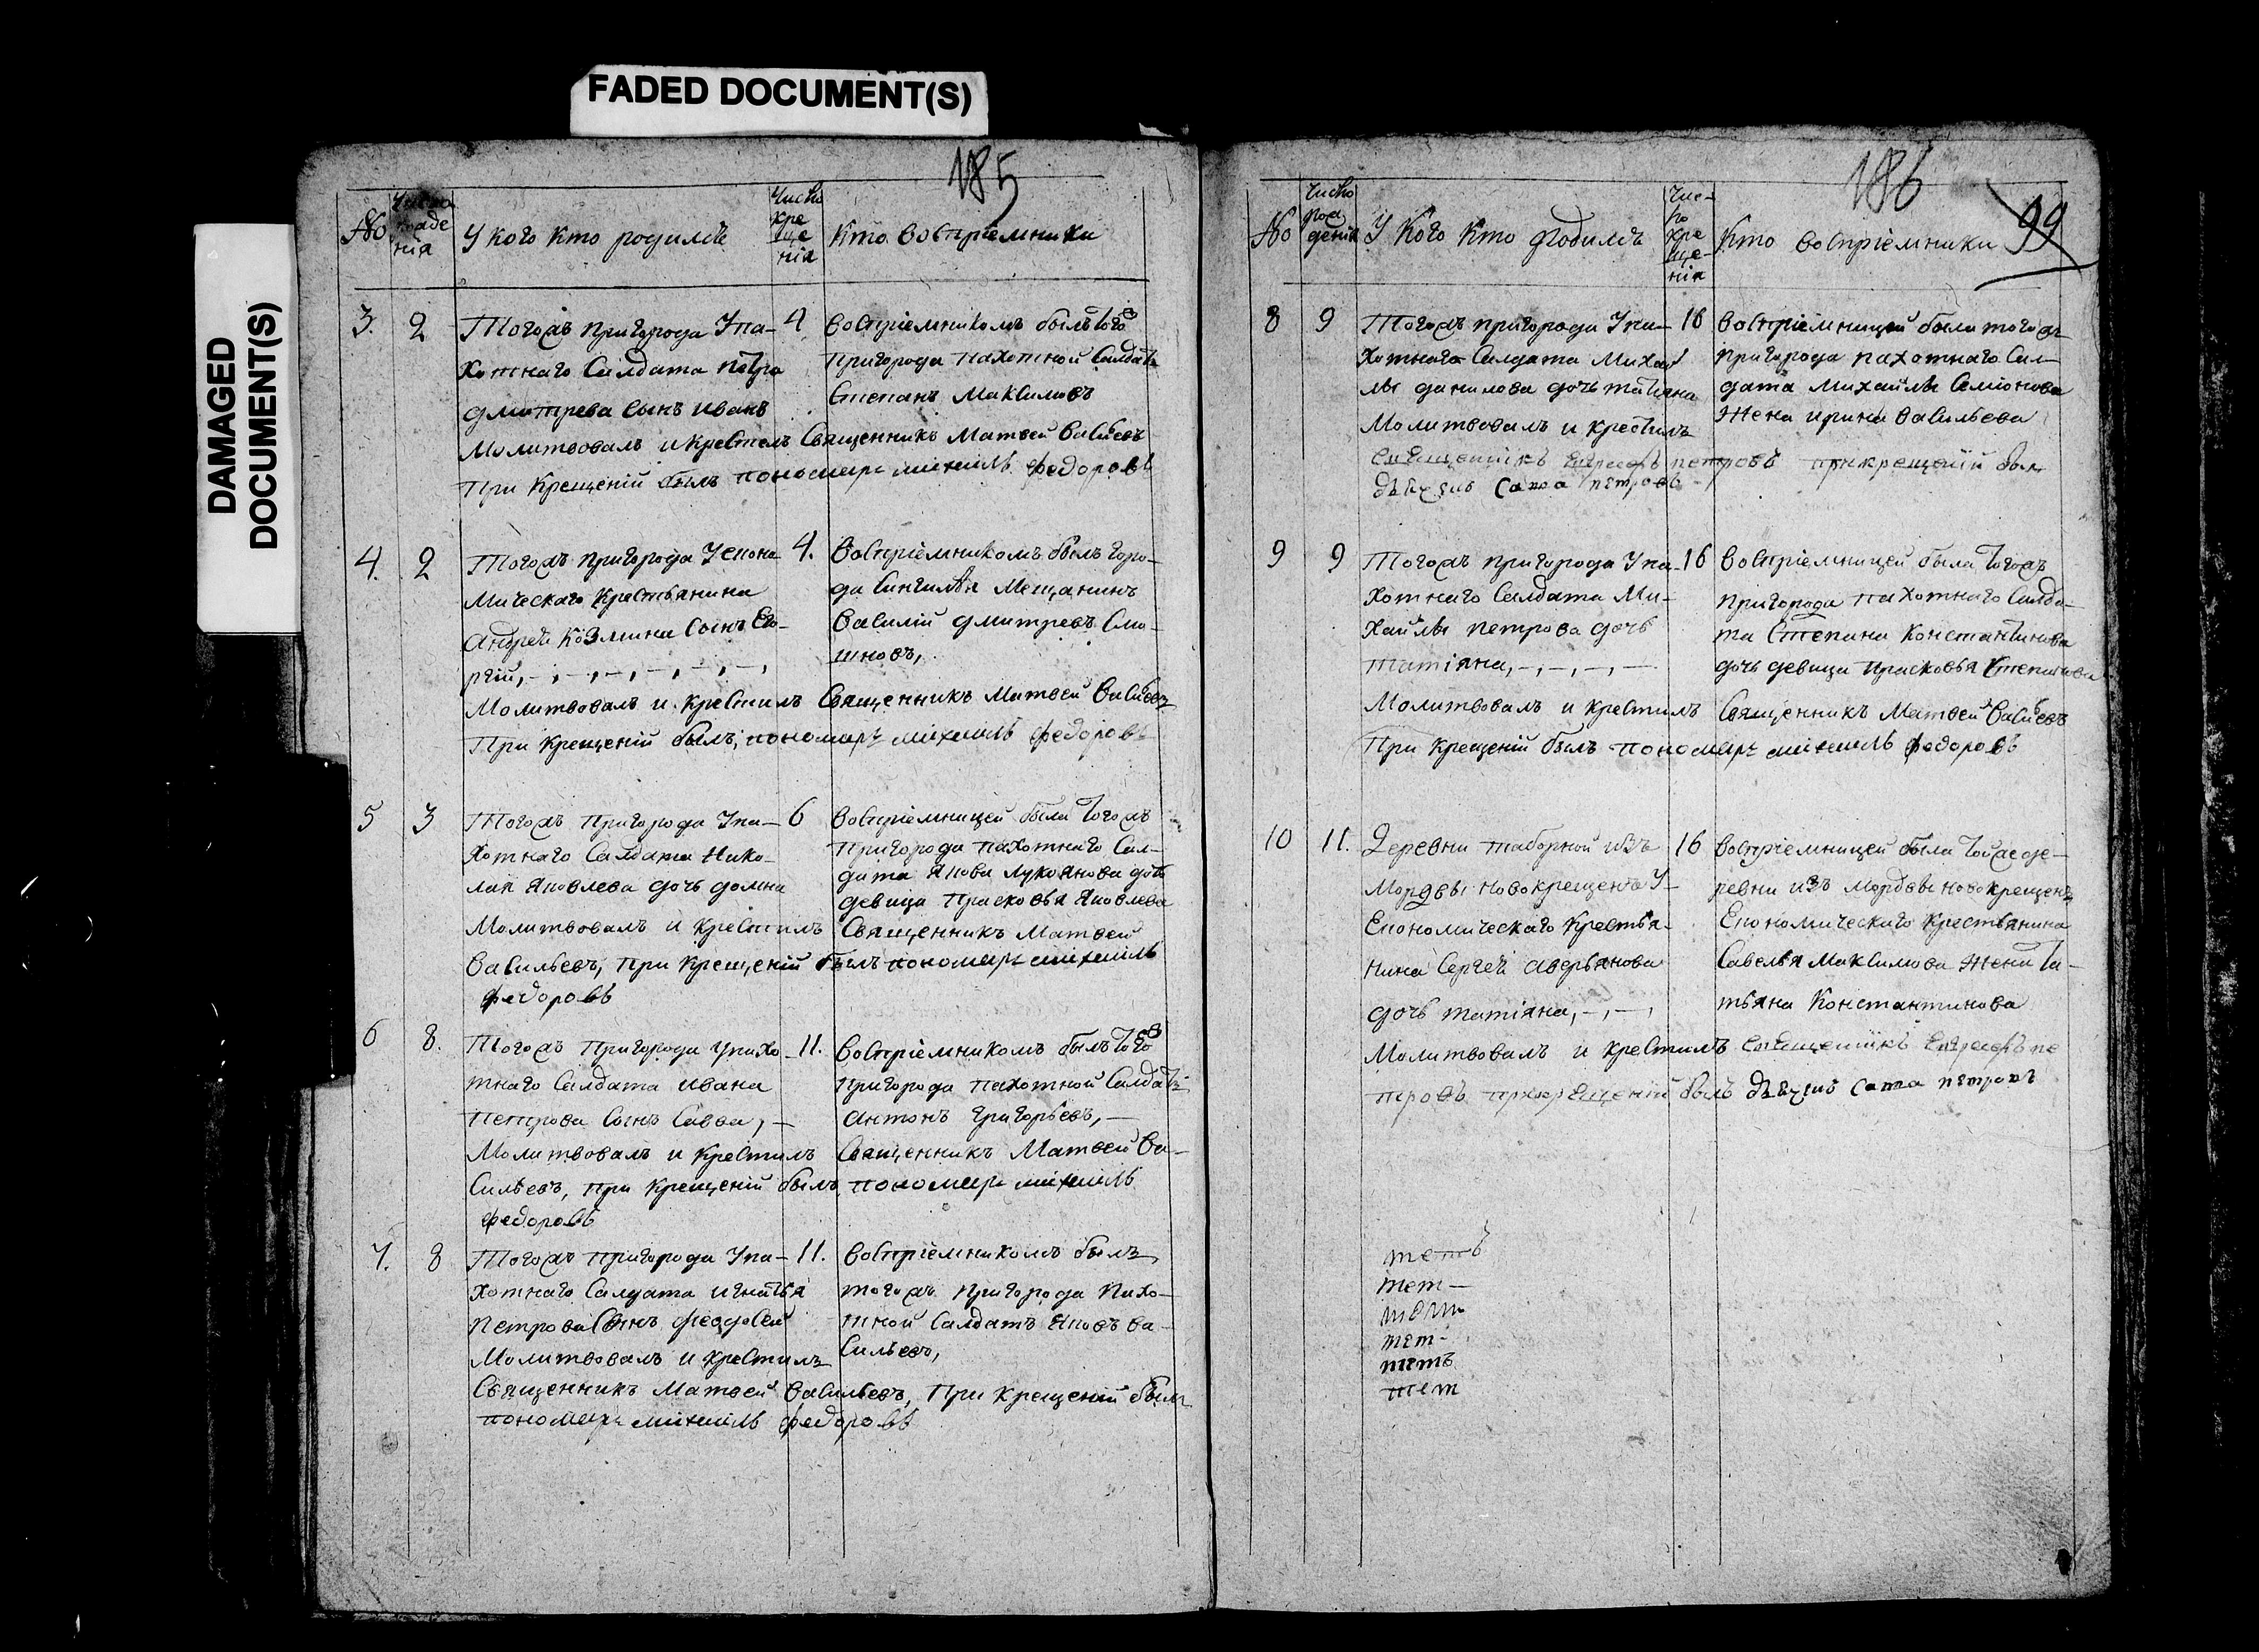 FADED DOCUMENT(S)
DAMAGED
DOCUMENT(S)
185
№
Число
рожде
нія
У кого кто родилсѣ
Число
кре
ще
нія
Кто воспріемники
3. 2
Тогожъ пригорода Упа-
хотнаго Салдата Петра
дмитрева сынъ иванъ
4
воспріемникомъ былъ того ж
пригорода пахотной Салдатъ
Степанъ Максимовъ
Молитвовалъ и крестилъ Священникъ Матвей Васильевъ
При Крещеній былъ пономарь михаилъ федоровъ
4. 2
Тогожъ пригорода Уекона-
мическаго Крестьянина
андрей козмина Сынъ Его-
рій,
4.
воспріемникомъ былъ горо-
да Сингилѣя Мещанинъ
Василій дмитревъ
Молитвовалъ и крестилъ Священникъ Матвей Васильевъ
При Крещеній былъ, пономарь михаилъ федоровъ
5 3
Тогожъ пригорода Упа-
хотнаго Салдата Нико-
лая Яковлева дочь домна
6
воспріемницей была тогожъ
Пригорода пахотнаго Сал-
дата Якова Лукоянова дочь
девица Прасковья Яковлева
Молитвовалъ и крестилъ Священникъ Матвей
Васильевъ, при Крещеній былъ пономарь михаилъ
федоровъ
6 8.
Тогожъ Пригорода Упахо-
тнаго Салдата ивана
петрова Сынъ Савва,
11.
воспріемникомъ былъ того ж
пригорода пахотной Салдатъ
антонъ григорьевъ,
Молитвовалъ и Крестилъ Священникъ Матвей Ва-
сильевъ, при Крещеній былъ пономарь михаилъ
федоровъ
7. 8
Тогожъ пригорода Упа-
хотнаго Салдата игнатья
петрова Сынъ феодосей
11.
воспріемникомъ былъ
тогожъ пригорода Пахо-
тной Салдатъ Яковъ ва-
сильевъ,
Молитвовалъ и крестилъ
Священникъ Матвей Васильевъ, При Крещеній былъ
пономарь михаилъ федоровъ
186
99
№
Число
рож
денія
У Кого Кто родилсъ
Чис-
ло
кре
ще-
нія
Кто воспріемники
8 9
Тогожъ пригорода Упа-
хотнаго Салдата Михай
лы данилова дочь татияна
16
воспріемницей была тогожъ
пригорода пахотнаго Сал-
дата Михайлы Семіонова
Жена ирина васильева
Молитвовалъ и крестилъ
священникъ петровъ при крещеній был
дьячекъ сава петровъ
9 9
Тогожъ пригорода Упа-
хотнаго Салдата Ми-
хайлы петрова дочь
татіяна,
16
воспріемницей была тогожъ
пригорода пахотнаго Салда-
та Степана Константинова
дочь девица Прасковья Степанова
Молитвовалъ и крестилъ Священникъ Матвей Васильевъ
При Крещеній былъ пономарь михаилъ федоровъ
10 11.
Деревни таборной изъ
Мордвы новокрещенъ У-
Економическаго Крестья-
нина Сергей аверьянова
дочь татіяна,
16
воспріемницей была тойже де-
ревни изъ Мордвы новокрещенъ
Економическаго Крестьянина
Савелья Максимова жена Та-
тьяна Константинова
Молитвовалъ и крестилъ священникъ пе
тровъ при крещеній былъ дьячекъ сава петровъ